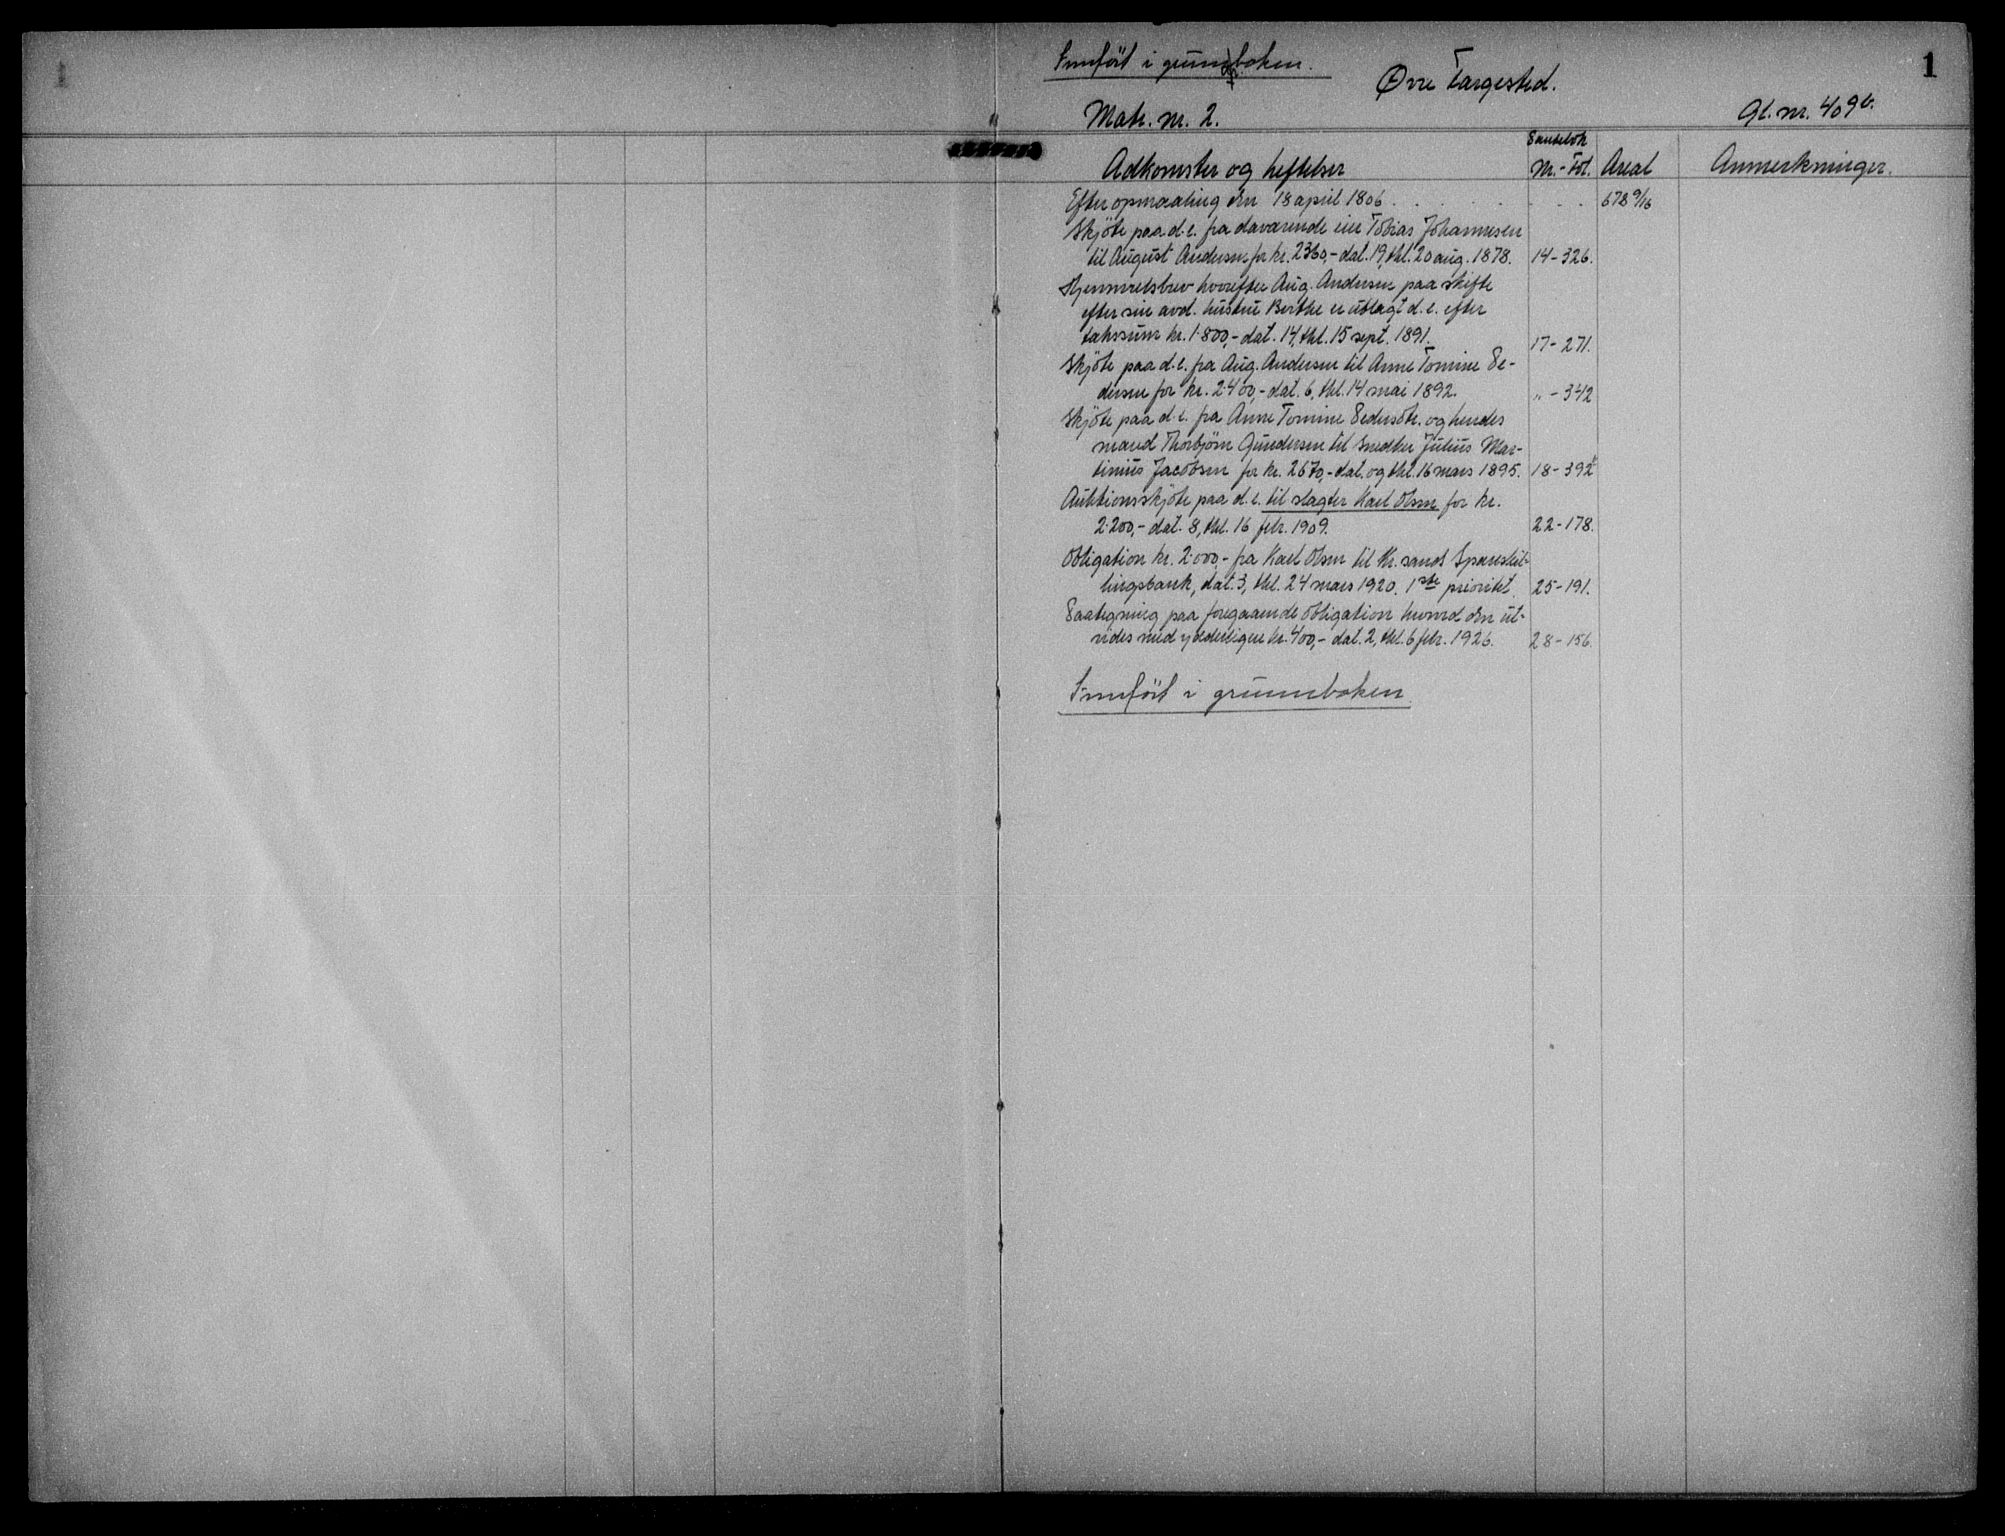 Innført i grunnboken.
Øvre Targested.
1
Matr. nr. 2.
Gl. nr. 409b.
Adkomster og heftelser
Pantebok
Nr. - Fol.
Areal
Anmerkninger.
Efter opmaaling den 18 april 1806 . . . . . . . . 678 9/16
Skjøte paa d.e. fra daværende eier Tobias Johannesen
til August Andersen for kr. 2360,- dat. 19, thl. 20 aug. 1878. 14-326.
Hjemmelsbrev hvorefter Aug. Andersen paa skifte
efter sin avd. hustru Berthe er utlagt d.e. efter
takssum kr. 1.800,- dat. 14, thl. 15 sept. 1891. 17-271.
Skjøte paa d.e. fra Aug. Andersen til Anne Tomine Pe-
dersen for kr. 2.400,- dat. 6, thl. 14 mai 1892. „-342
Skjøte paa d.e. fra Anne Tomine Pedersdtr. og hendes
mand Thorbjørn Gundersen til snedker Julius Mar-
tinius Jacobsen for kr. 2670,- dat. og thl. 16 mars 1895. 18-392
Auktionsskjøte paa d.e. til slagter Karl Olsen for kr.
2.200,- dat. 8, thl. 16 febr. 1909. 22-178.
Obligation kr. 2.000,- fra Karl Olsen til Kr.sands Spareskil-
lingsbank, dat. 3, thl. 24 mars 1920. 1ste prioritet. 25-191.
Paategning paa foregaaende obligation hvorved den ut-
vides med yderligere kr. 400,- dat. 2, thl. 6 febr. 1926. 28-156.
Innført i grunnboken